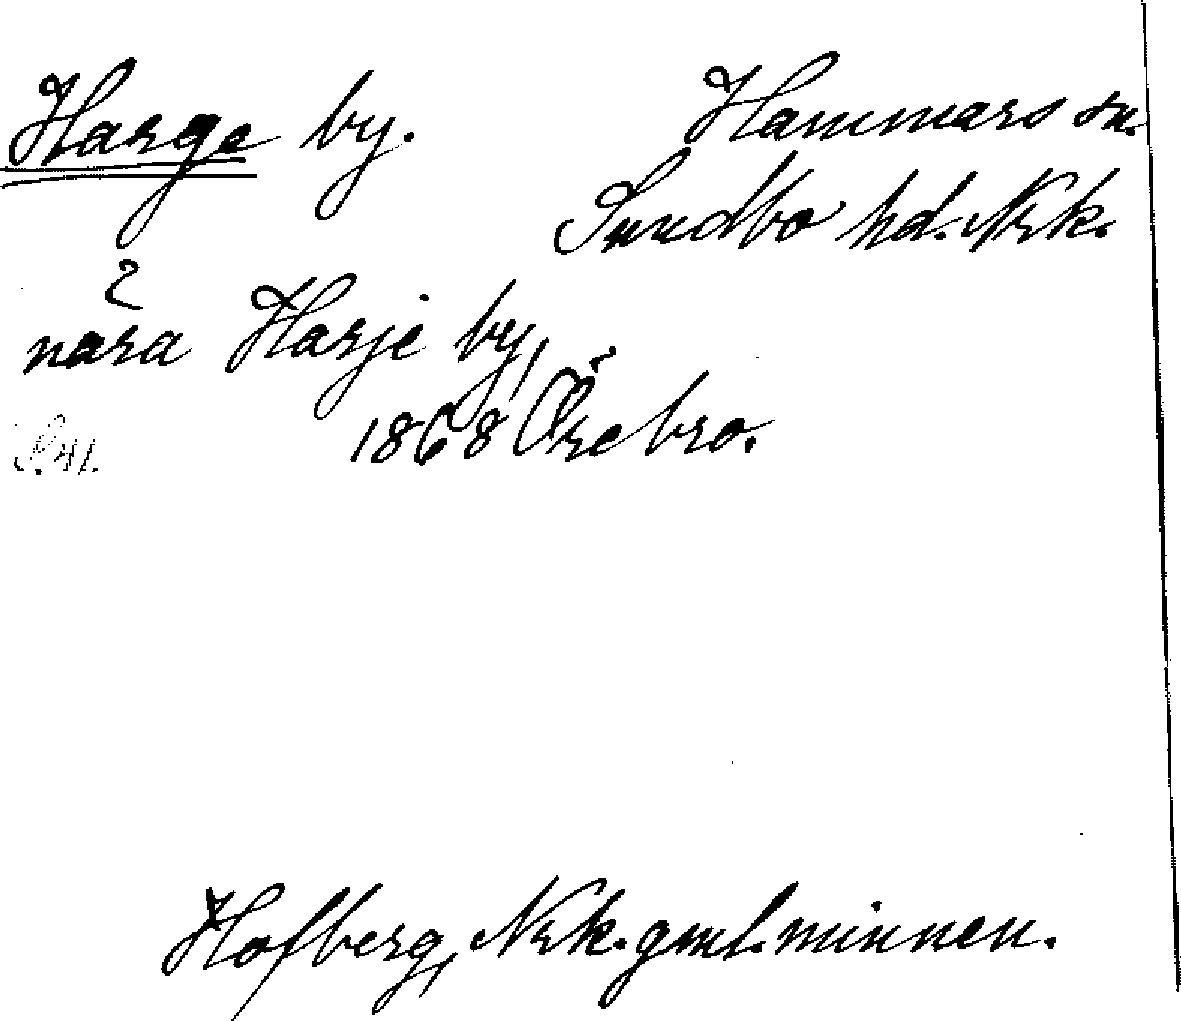 Harge by. Hammars sn.
Sundbo hd. Nrk.
nära Harje by,
1868 Örebro.
S. 41.
Hofberg, Nrk. gml. minnen.